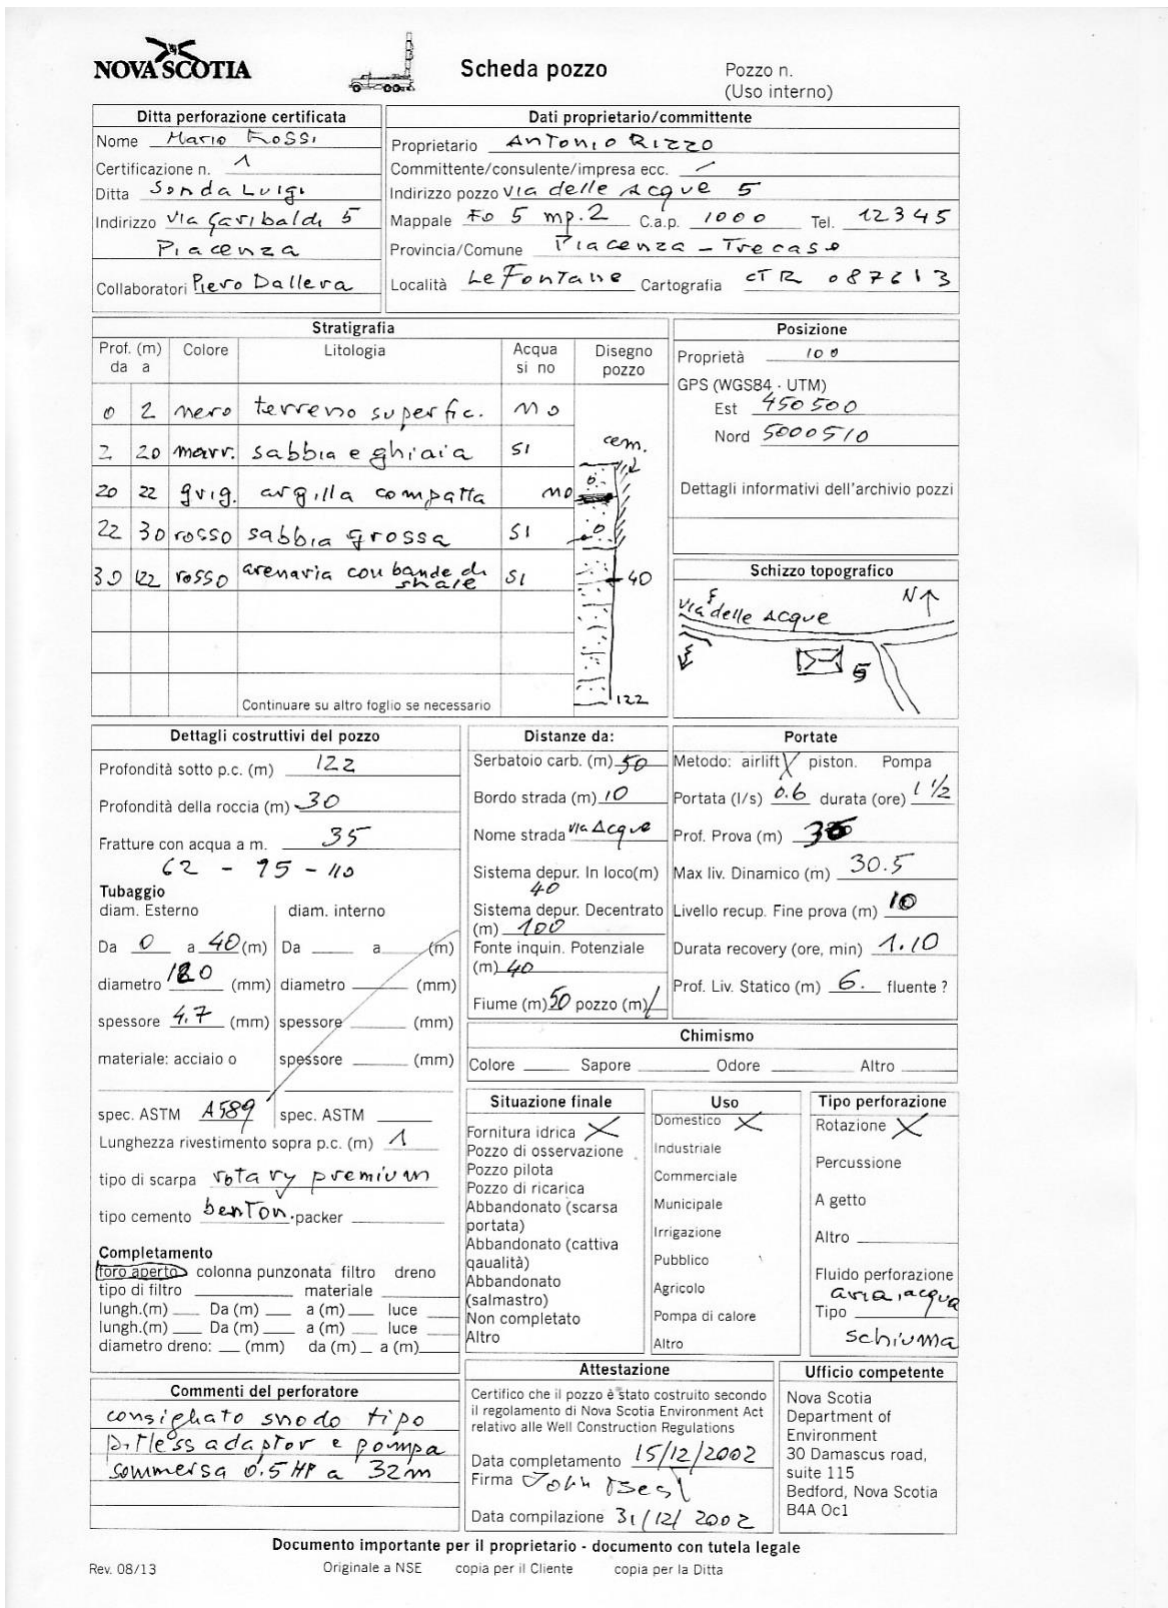 NOVA SCOTIA
Scheda pozzo
Pozzo n.
(Uso interno)
Ditta perforazione certificata
Nome Mario Rossi
Certificazione n. 1
Ditta Sonda Luigi
Indirizzo via Garibaldi 5
Piacenza
Collaboratori Piero Dallera
Dati proprietario/committente
Proprietario Antonio Rizzo
Committente/consulente/impresa ecc. /
Indirizzo pozzo via delle Acque 5
Mappale Fo 5 mp.2 C.a.p. 1000 Tel. 12345
Provincia/Comune Piacenza - Trecase
Località Le Fontane Cartografia CTR 087613
Stratigrafia
Prof. (m) Colore Litologia Acqua Disegno
da a si no pozzo
0 2 nero terreno superfic. no
2 20 marr. sabbia e ghiaia SI
20 22 grig. argilla compatta no
22 30 rosso sabbia grossa SI
30 122 rosso arenaria con bande di
shale SI
Continuare su altro foglio se necessario
cem.
40
122
Posizione
Proprietà 100
GPS (WGS84 - UTM)
Est 450500
Nord 5000510
Dettagli informativi dell'archivio pozzi
Schizzo topografico
N
via delle Acque
5
Dettagli costruttivi del pozzo
Profondità sotto p.c. (m) 122
Profondità della roccia (m) 30
Fratture con acqua a m. 35
62 - 95 - 110
Tubaggio
diam. Esterno diam. interno
Da 0 a 40 (m) Da a (m)
diametro 180 (mm) diametro (mm)
spessore 4.7 (mm) spessore (mm)
materiale: acciaio o spessore (mm)
spec. ASTM A589 spec. ASTM
Lunghezza rivestimento sopra p.c. (m) 1
tipo di scarpa rotary premium
tipo cemento benton. packer
Completamento
foro aperto colonna punzonata filtro dreno
tipo di filtro materiale
lungh.(m) Da (m) a (m) luce
lungh.(m) Da (m) a (m) luce
diametro dreno: (mm) da (m) a (m)
Commenti del perforatore
consigliato snodo tipo
pitless adaptor e pompa
sommersa 0.5 HP a 32m
Distanze da:
Serbatoio carb. (m) 50
Bordo strada (m) 10
Nome strada via Acque
Sistema depur. In loco(m)
40
Sistema depur. Decentrato
(m) 100
Fonte inquin. Potenziale
(m) 40
Fiume (m) 50 pozzo (m) /
Portate
Metodo: airlift X piston. Pompa
Portata (l/s) 0.6 durata (ore) 1 1/2
Prof. Prova (m)
Max liv. Dinamico (m) 30.5
Livello recup. Fine prova (m) 10
Durata recovery (ore, min) 1.10
Prof. Liv. Statico (m) 6. fluente ?
Chimismo
Colore Sapore Odore Altro
Situazione finale
Fornitura idrica X
Pozzo di osservazione
Pozzo pilota
Pozzo di ricarica
Abbandonato (scarsa
portata)
Abbandonato (cattiva
qaualità)
Abbandonato
(salmastro)
Non completato
Altro
Uso
Domestico X
Industriale
Commerciale
Municipale
Irrigazione
Pubblico
Agricolo
Pompa di calore
Altro
Tipo perforazione
Rotazione X
Percussione
A getto
Altro
Fluido perforazione
aria, acqua
Tipo
schiuma
Attestazione
Certifico che il pozzo è stato costruito secondo
il regolamento di Nova Scotia Environment Act
relativo alle Well Construction Regulations
Data completamento 15/12/2002
Firma John
Data compilazione 31/12/2002
Ufficio competente
Nova Scotia
Department of
Environment
30 Damascus road,
suite 115
Bedford, Nova Scotia
B4A Oc1
Documento importante per il proprietario - documento con tutela legale
Rev. 08/13 Originale a NSE copia per il Cliente copia per la Ditta